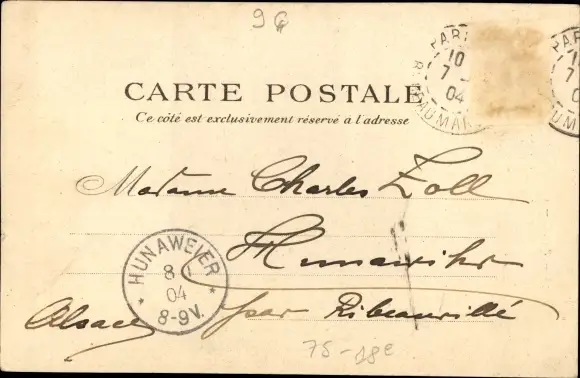 9G
PARIS
10
7
04
R. BEAUMAR
CARTE POSTALE
Ce côté est exclusivement réservé à l'adresse
Madame Charles Zoll
Hunawihr
HUNAWEIER
8
1
04
8-9V.
Alsace par Ribeauvillé
75-18e